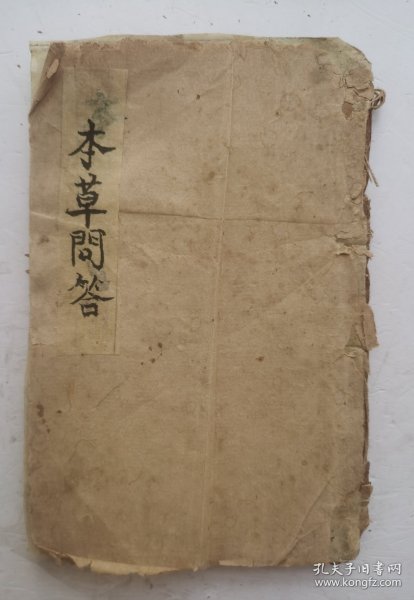 本草問答
孔夫子旧書网
www.kongfz.com